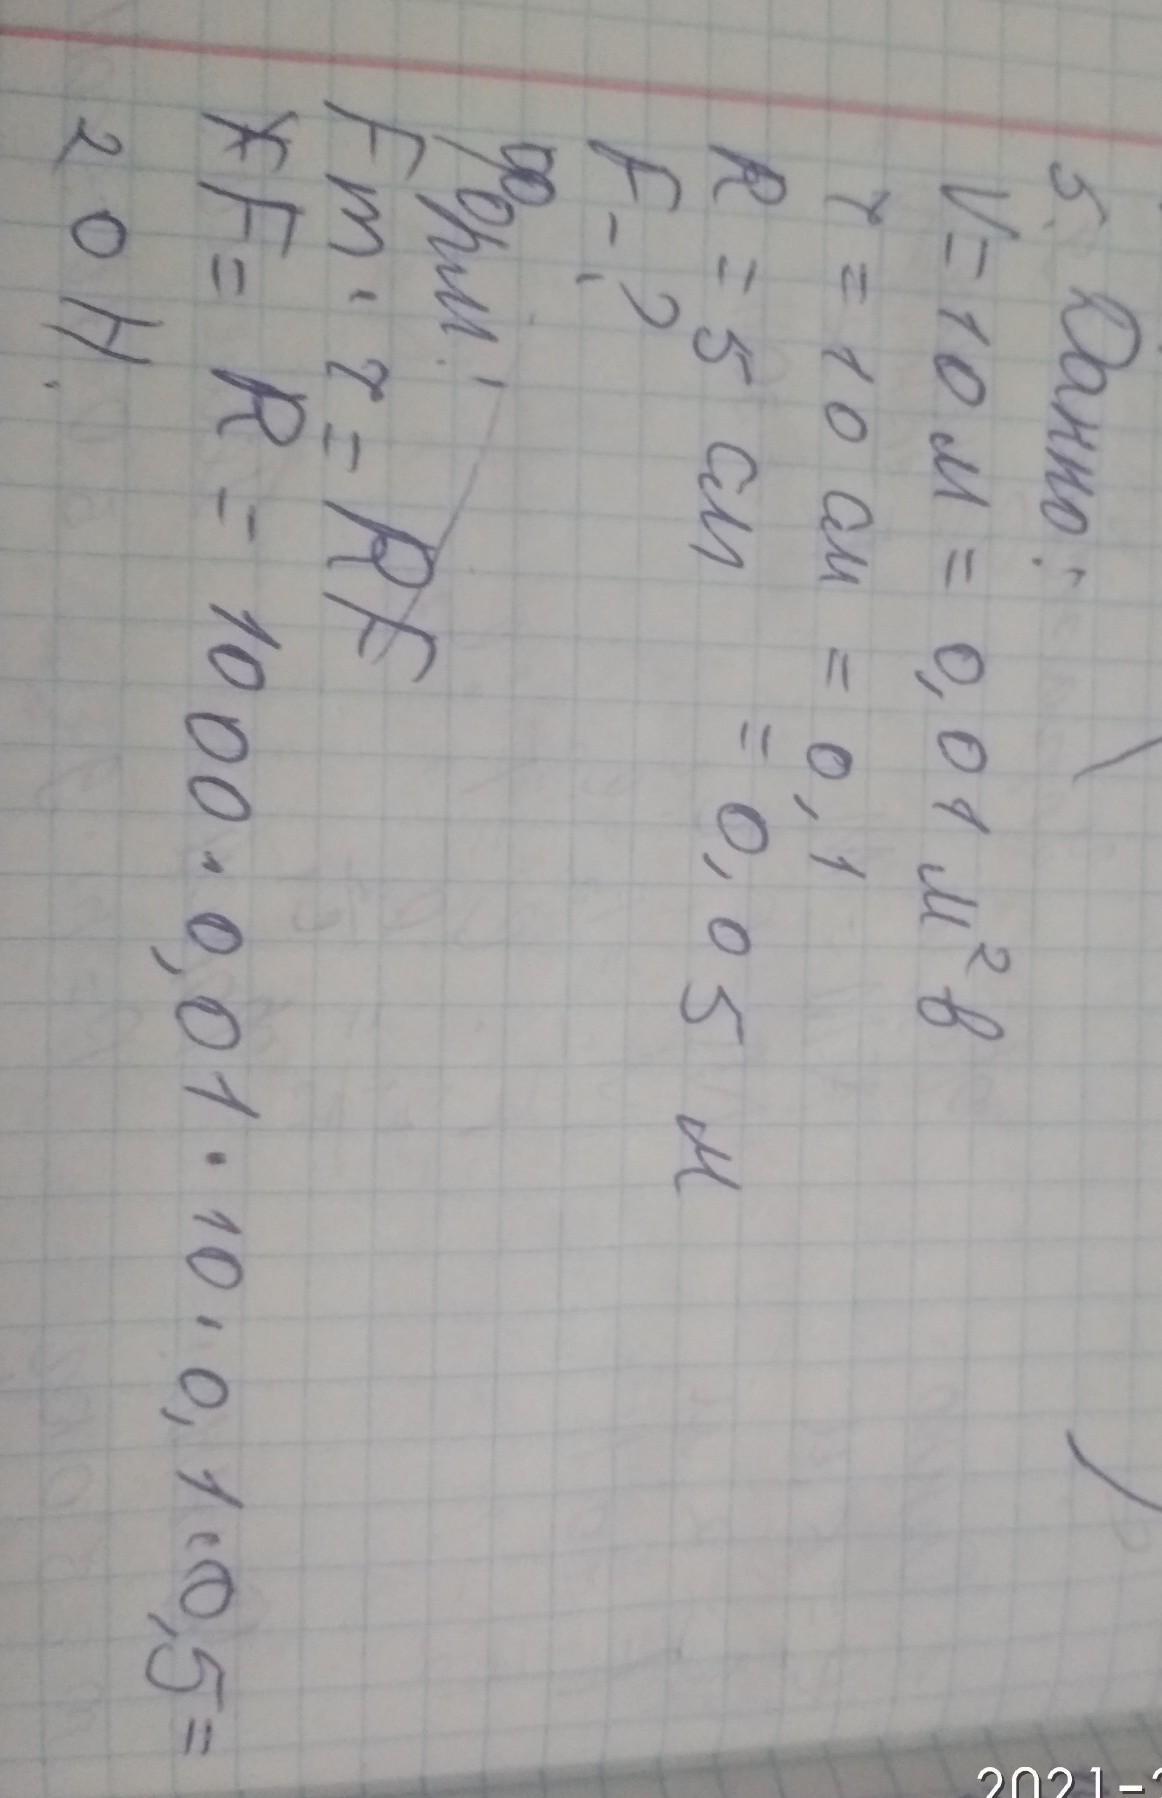 5. Дано:
V = 10 м = 0,01 м² в
r = 10 см = 0,1
R = 5 см = 0,05 м
F - ?
Fm · r = RF
F = R = 1000 · 0,01 · 10 · 0,1 · 0,5 =
20 Н.
2021-